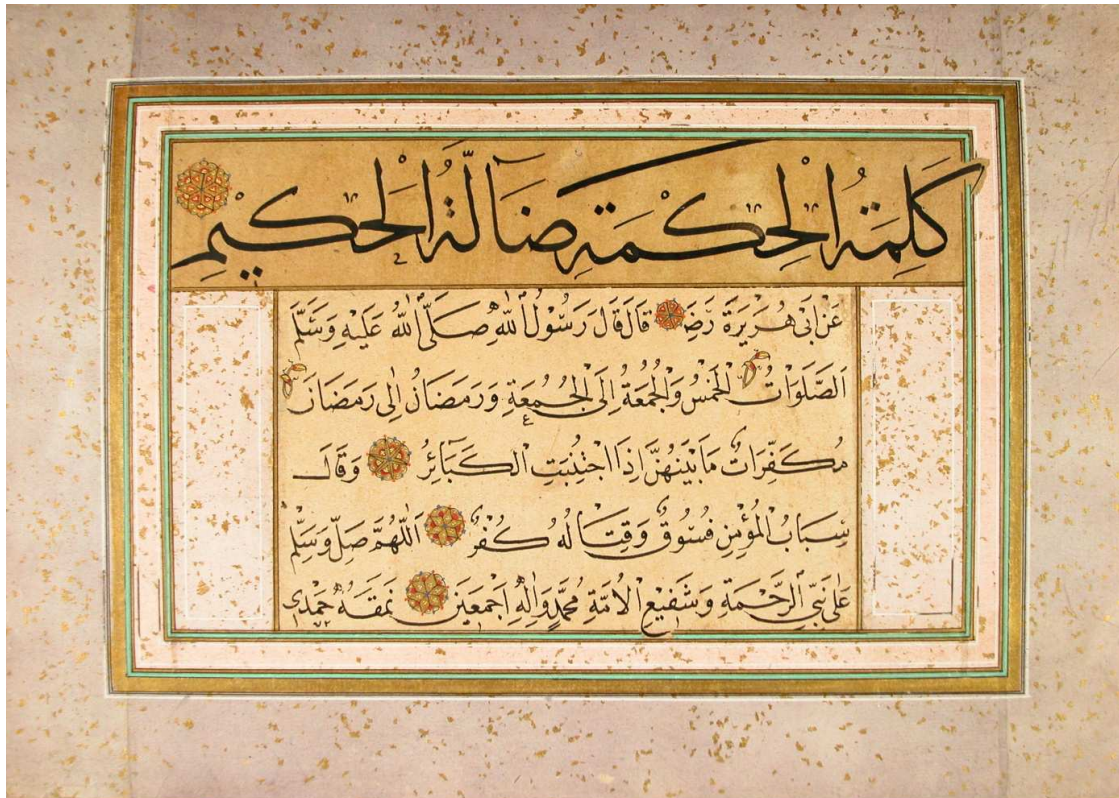 كَلِمَةُ الْحِكْمَةِ ضَالَّةُ الْحَكِيْمِ
عَنْ اَبِى هُرَيْرَةَ رَضِ قَالَ قَالَ رَسُوْلُ اللّٰهِ صَلَّى اللّٰهُ عَلَيْهِ وَسَلَّمَ
الصَّلَوَاتُ الْخَمْسُ وَالْجُمُعَةُ اِلَى الْجُمُعَةِ وَرَمَضَانُ اِلٰى رَمَضَانَ
مُكَفِّرَاتٌ مَابَيْنَهُنَّ اِذَا اجْتُنِبَتِ الْكَبَآئِرُ وَقَالَ
سِبَابُ الْمُؤْمِنِ فُسُوْقٌ وَقِتَالُهُ كُفْرٌ اَللّٰهُمَّ صَلِّ وَسَلِّمْ
عَلٰى نَبِىِّ الرَّحْمَةِ وَشَفِيْعِ الْاُمَّةِ مُحَمَّدٍ وَاٰلِهِ اَجْمَعِيْنَ نَمَقَهُ حَمْدِى